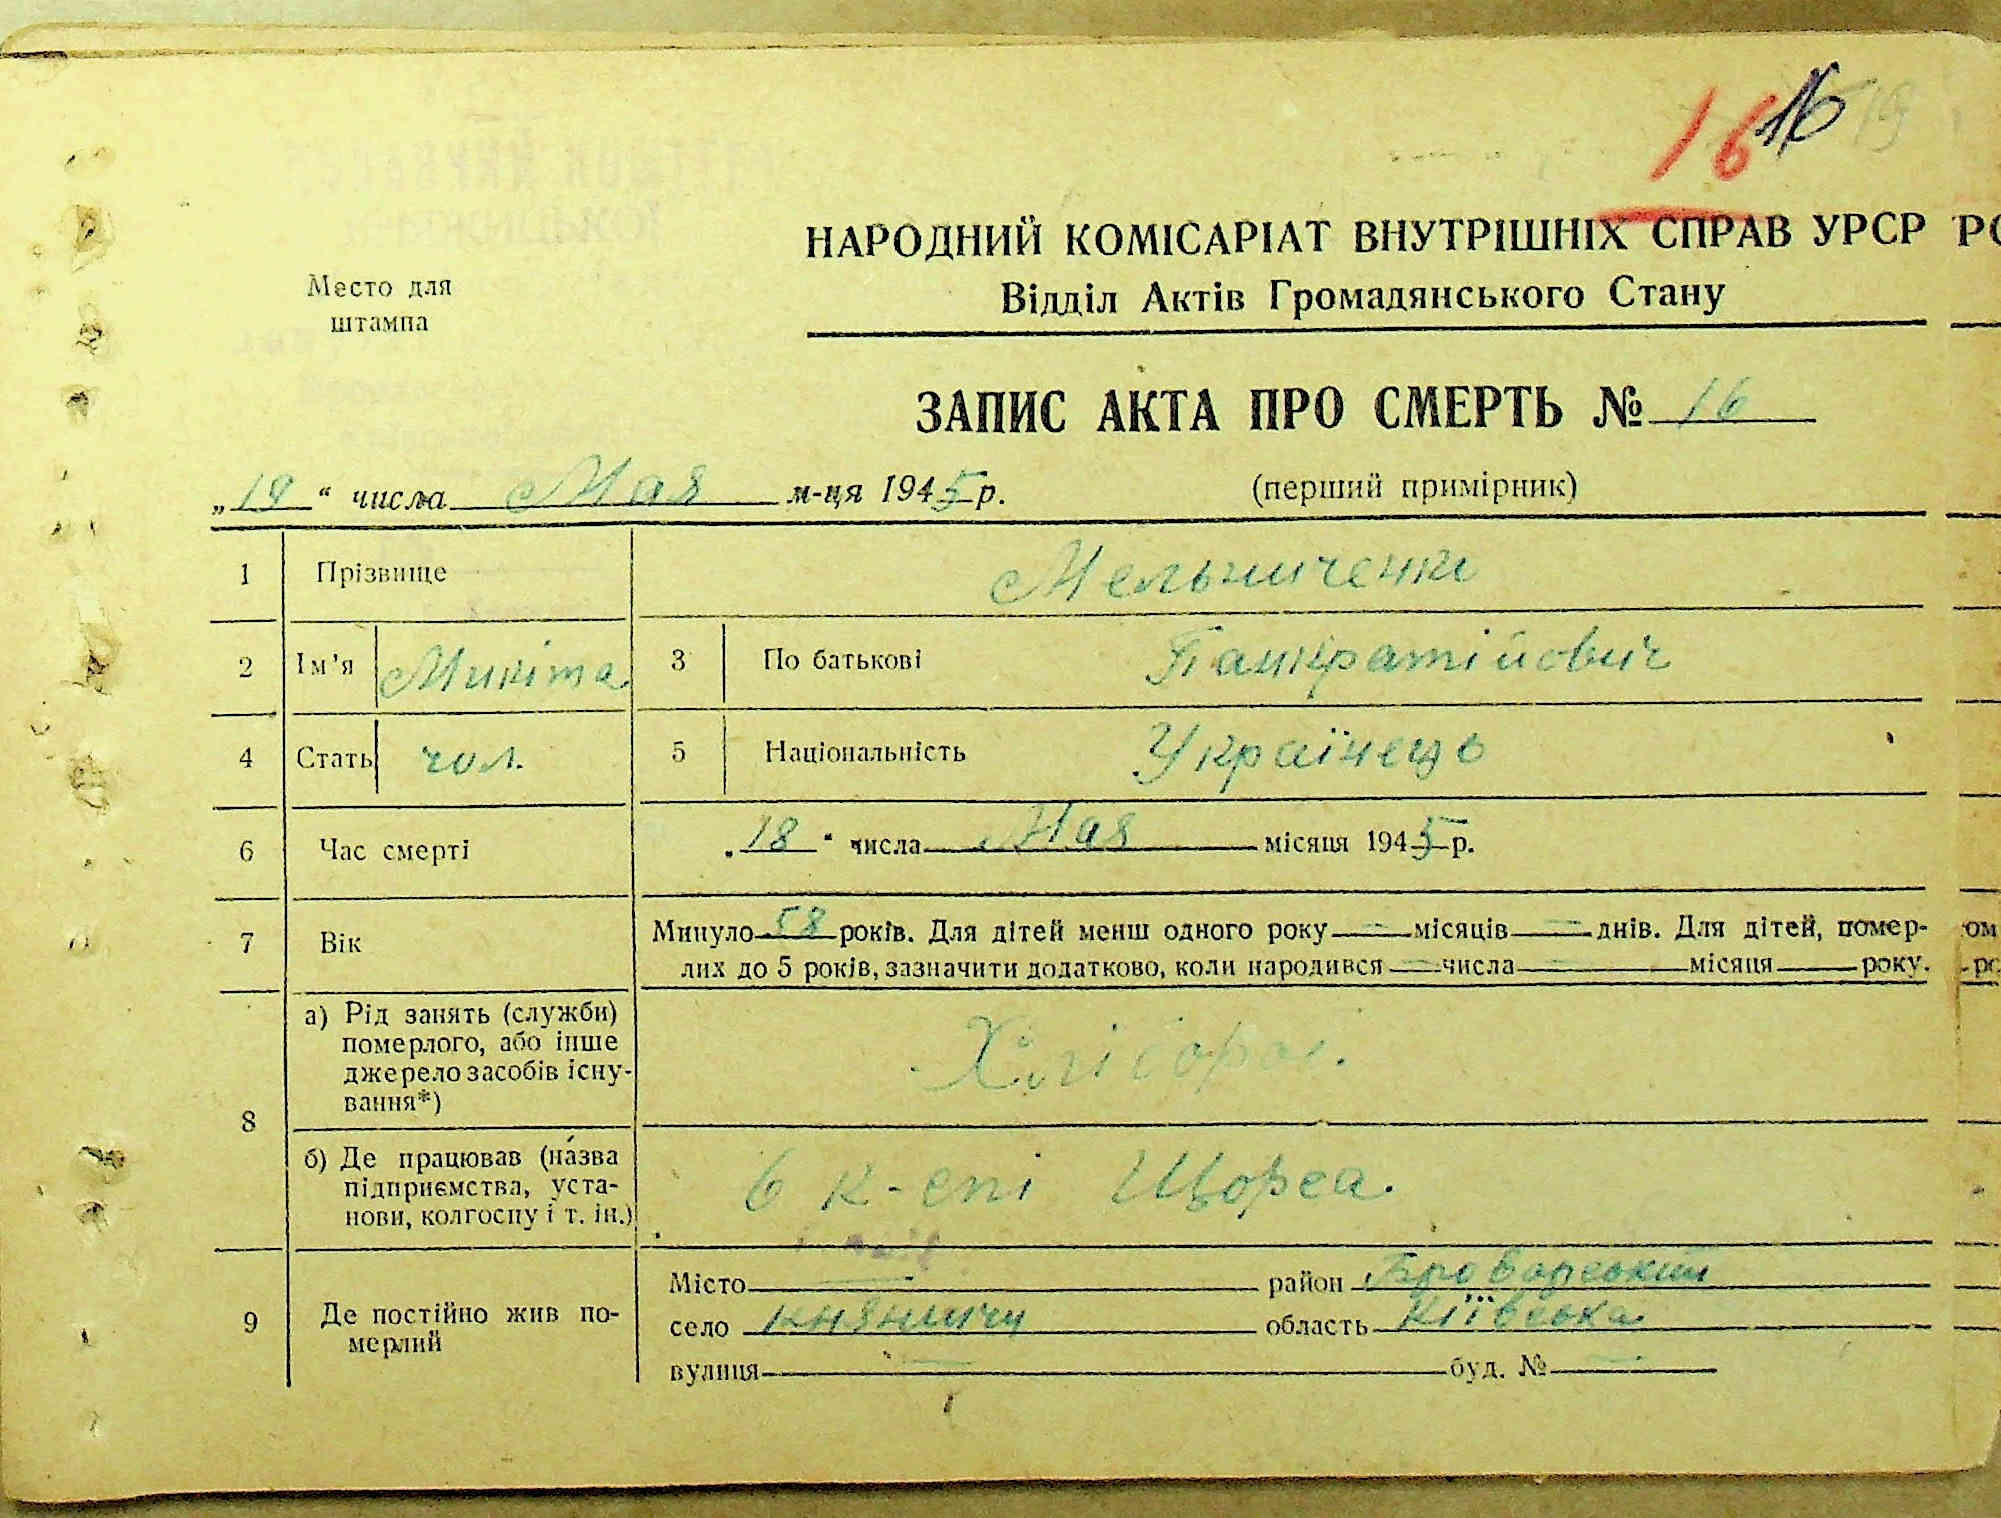 16 16 19
НАРОДНИЙ КОМІСАРІАТ ВНУТРІШНІХ СПРАВ УРСР
Відділ Актів Громадянського Стану
Место для
штампа
ЗАПИС АКТА ПРО СМЕРТЬ № 16
„19“ числа Мая м-ця 1945 р. (перший примірник)
1 Прізвище Мельниченко
2 Ім'я Микіта 3 По батькові Панкратійович
4 Стать чол. 5 Національність Українець
6 Час смерті „18“ числа Мая місяця 1945 р.
7 Вік Минуло 58 років. Для дітей менш одного року — місяців — днів. Для дітей, помер-
лих до 5 років, зазначити додатково, коли народився — числа — місяця року.
8 а) Рід занять (служби)
померлого, або інше
джерело засобів існу-
вання*)
Хлібороб.
б) Де працював (назва
підприємства, уста-
нови, колгоспу і т. ін.)
в к-спі Щорса.
9 Де постійно жив по-
мерлий
Місто — район Броварський
село Княжичи область Київська
вулиця — буд. № —